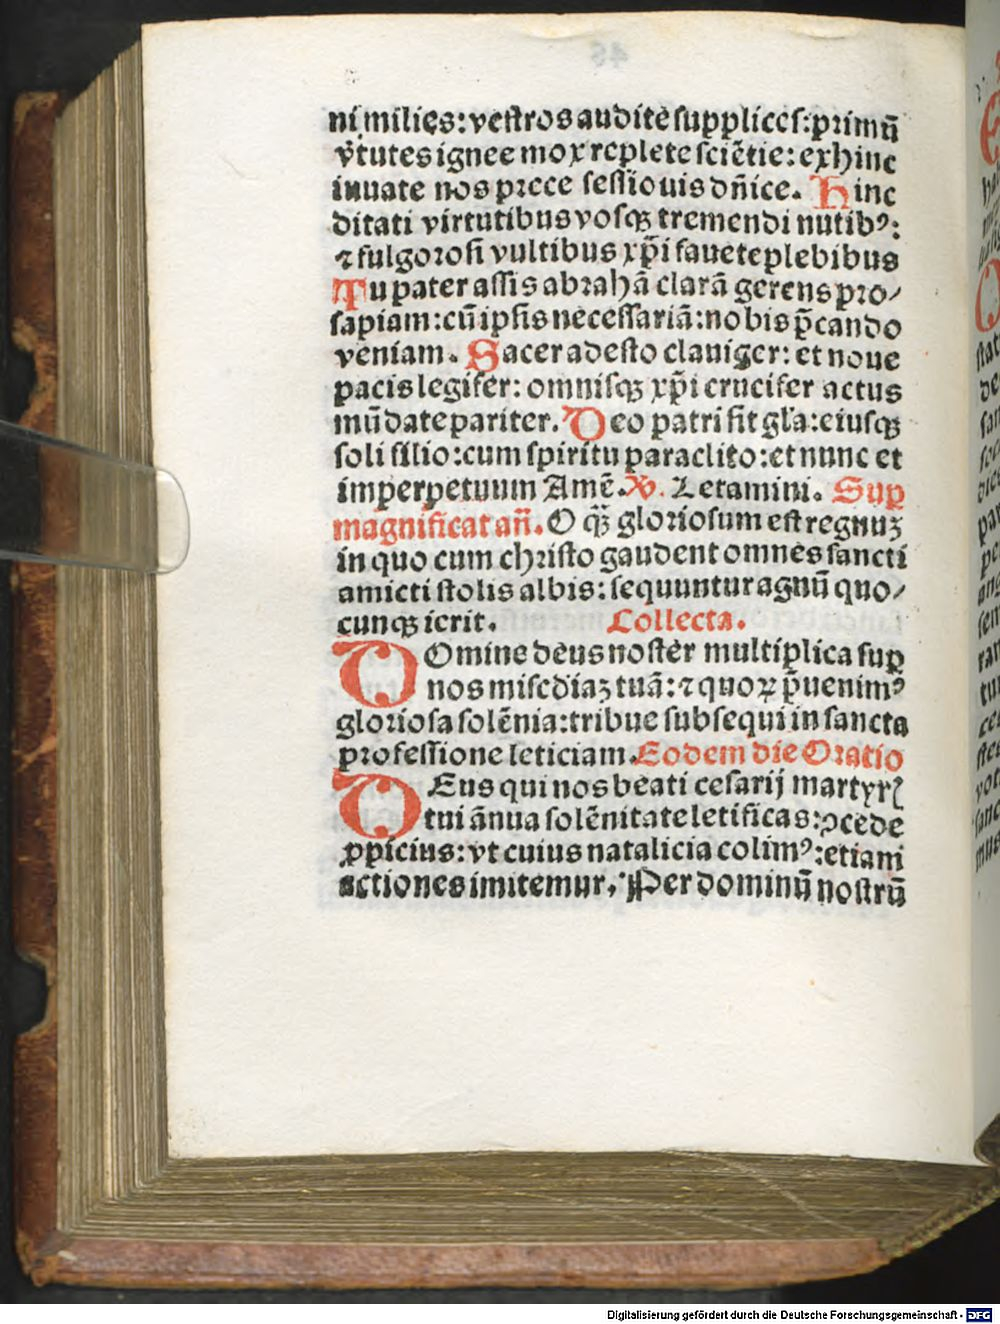 ni milies: vestros audite supplices: primū
v̄tutes ignee mox replete sciētie: exhinc
iuuate nos prece sessiouis dn̄ice. Hinc
ditati virtutibus vosqꝫ tremendi nutibꝰ:
⁊ fulgorosi vultibus xp̄i fauete plebibus
Tu pater assis abrahā clarā gerens pro⸗
sapiam: cū ipsis necessariā: nobis p̄cando
veniam. Sacer adesto clauiger: et noue
pacis legifer: omnisqꝫ xp̄i crucifer actus
mūdate pariter. Deo patri sit gl̄a: eiusqꝫ
soli filio: cum spiritu paraclito: et nunc et
imperpetuum Amē. V. Letamini. Sup̱
magnificat añ. O qꝫ̄ gloriosum est regnuꝫ
in quo cum christo gaudent omnes sancti
amicti stolis albis: sequuntur agnū quo⸗
cunqꝫ ierit. Collecta.
DOmine deus noster multiplica sup̱
nos misc̄diaꝫ tuā: ⁊ quoꝝ p̄uenimꝰ
gloriosa solēnia: tribue subsequi in sancta
professione leticiam. Eodem die Oratio
DEus qui nos beati cesarij martyrꝭ
tui ānua solēnitate letificas: ꝯcede
ꝓpicius: vt cuius natalicia colimꝰ: etiam
actiones imitemur. Per dominū nostrū
Digitalisierung gefördert durch die Deutsche Forschungsgemeinschaft - DFG